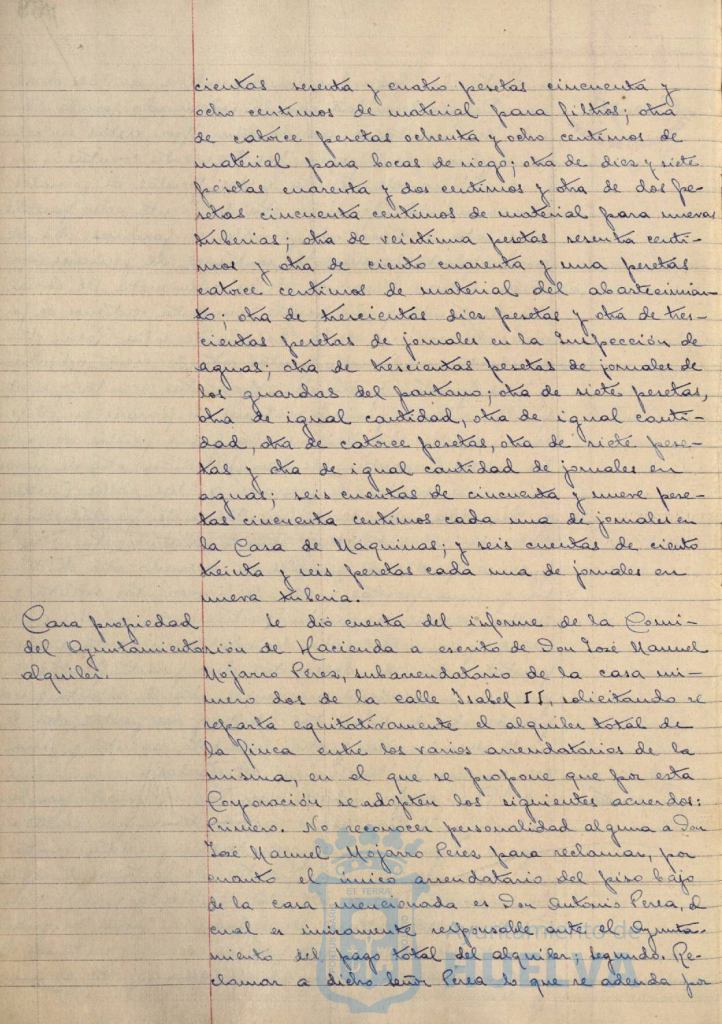 cientas sesenta y cuatro pesetas cincuenta y
ocho centimos de material para filtros; otra
de catorce pesetas ochenta y ocho centimos de
material para bocas de riego; otra de diez y siete
pesetas cuarenta y dos centimos y otra de dos pe-
setas cincuenta centimos de material para nuevas
tuberias; otra de veintiuna pesetas sesenta centi-
mos y otra de ciento cuarenta y una pesetas
catorce centimos de material del abastecimien-
to; otra de trescientas diez pesetas y otra de tres-
cientas pesetas de jornales en la Inspección de
aguas; otra de trescientas pesetas de jornales de
los guardas del pantano; otra de siete pesetas,
otra de igual cantidad, otra de igual canti-
dad, otra de catorce pesetas, otra de siete pese-
tas y otra de igual cantidad de jornales en
aguas; seis cuentas de cincuenta y nueve pese-
tas cincuenta centimos cada una de jornales en
la Casa de Maquinas; y seis cuentas de ciento
treinta y seis pesetas cada una de jornales en
nueva tuberia.
Casa propiedad
del Ayuntamiento
alquiler.
Se dió cuenta del informe de la Comi-
sión de Hacienda a escrito de Don José Manuel
Mojarro Perez, subarrendatario de la casa nú-
mero dos de la calle Isabel II, solicitando se
reparta equitativamente el alquiler total de
la finca entre los varios arrendatarios de la
misma, en el que se propone que por esta
Corporación se adopten los siguientes acuerdos:
Primero. No reconocer personalidad alguna a Don
José Manuel Mojarro Perez para reclamar, por
cuanto el único arrendatario del piso bajo
de la casa mencionada es Don Antonio Perea, el
cual es unicamente responsable ante el Ayunta-
miento del pago total del alquiler; segundo. Re-
clamar a dicho Señor Perea lo que se adeuda por
Ayuntamiento de
HUELVA